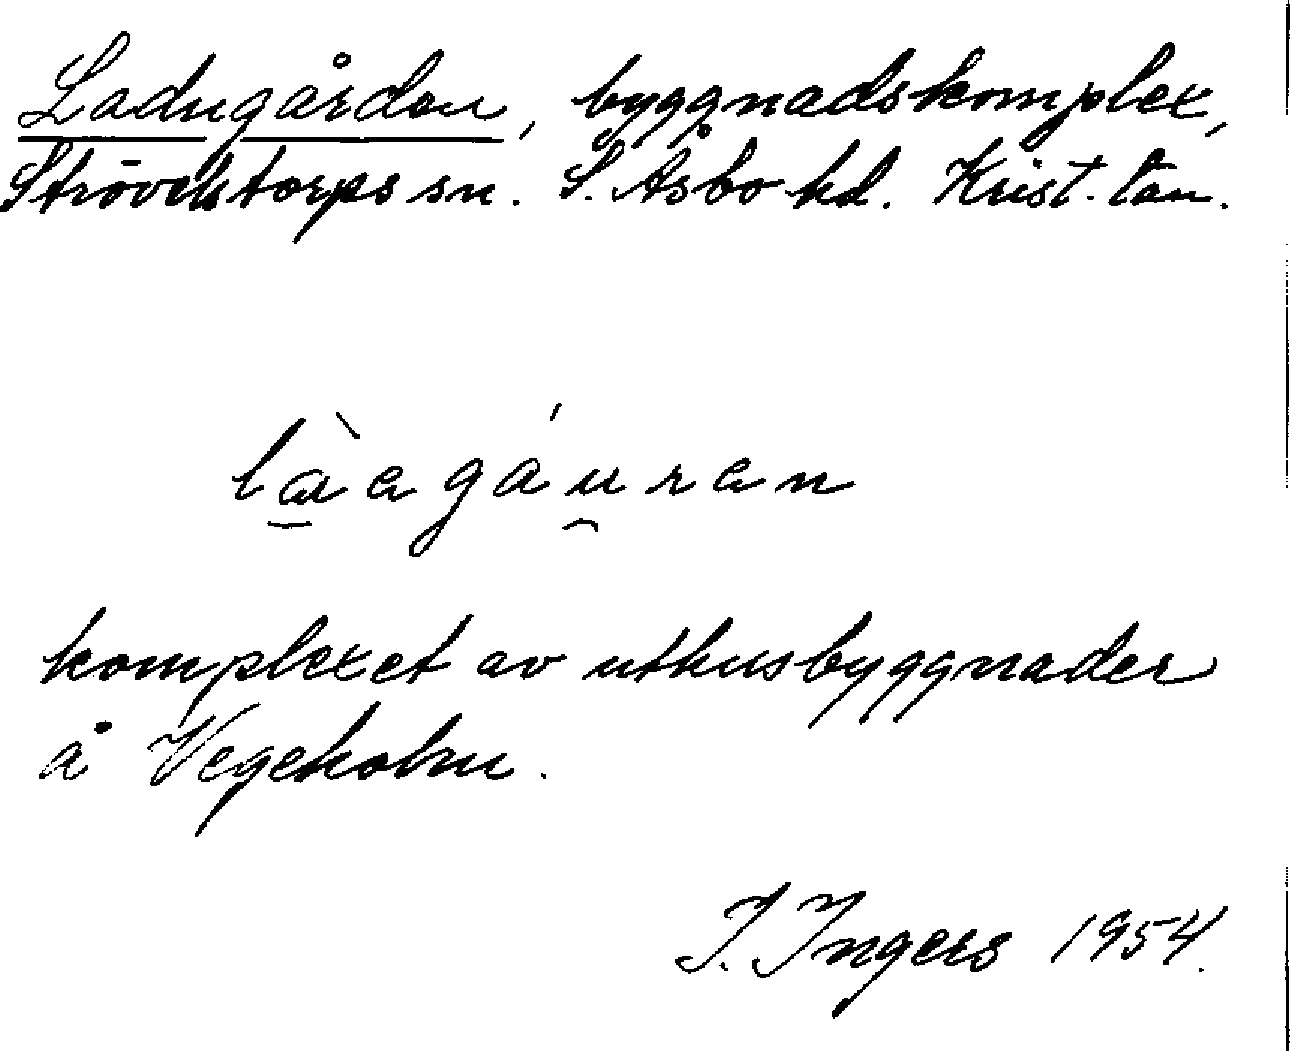 Ladugården, byggnadskomplex,
Strövelstorps sn. S. Åsbo hd. Krist. län.
lɑ̀ագáu̯rən
komplexet av uthusbyggnader
å Vegeholm.
I. Ingers 1954.